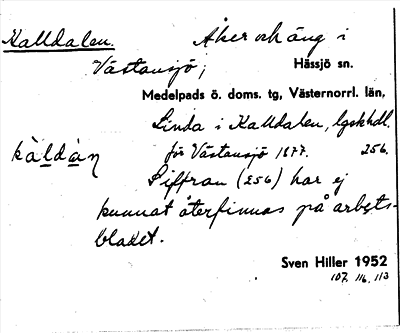 Kalldalen. Åker och äng i
Västansjö; Hässjö sn.
Medelpads ö. doms. tg, Västernorrl. län,
Linda i Kalldalen, lgskhdl.
kàldàn för Västansjö 1877. 256.
Siffran (256) har ej
kunnat återfinnas på arbets-
bladet.
Sven Hiller 1952
107, 116, 113